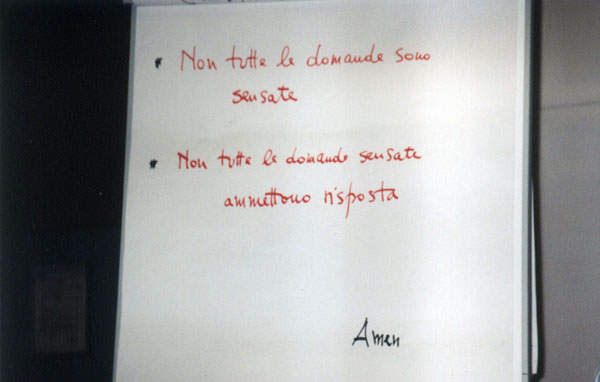 • Non tutte le domande sono
sensate
• Non tutte le domande sensate
ammettono risposta
Amen